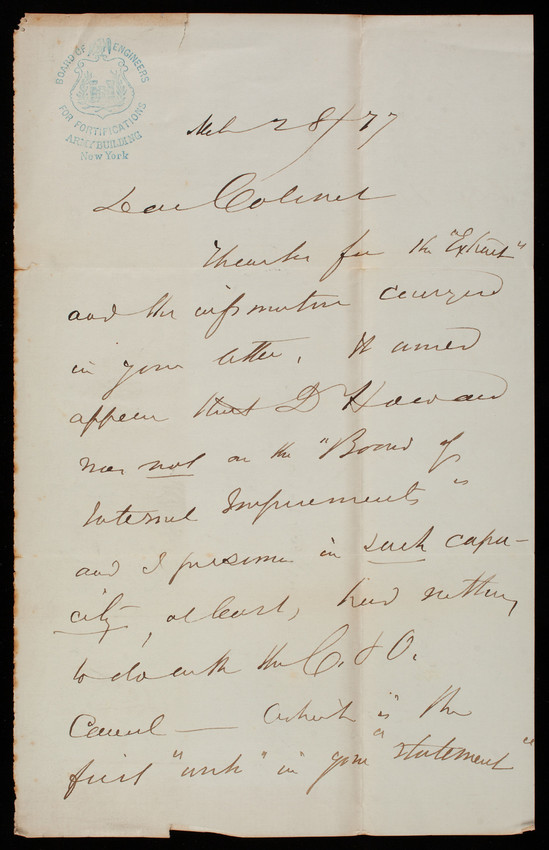 BOARD OF ENGINEERS
FOR FORTIFICATIONS
ARMY BUILDING
New York
Mch 28/77
Dear Colonel
Thanks for the "Extract"
and the information conveyed
in your letter. It would
appear that D Howard
was not on the "Board of
Internal Improvements"
and I presume in such capa-
city, at least, had nothing
to do with the C. & O.
Canal — which is the
first "work" in your "statement"